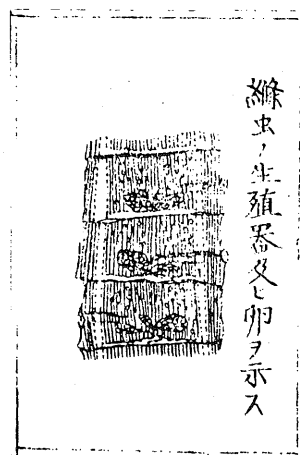 縧虫ノ生殖器及ヒ卵ヲ示ス